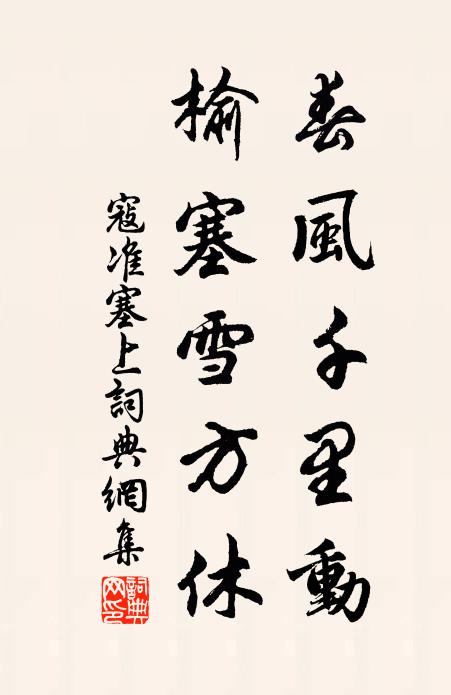 春風千里動
榆塞雪方休
寇准塞上詞典網集
詞典網印